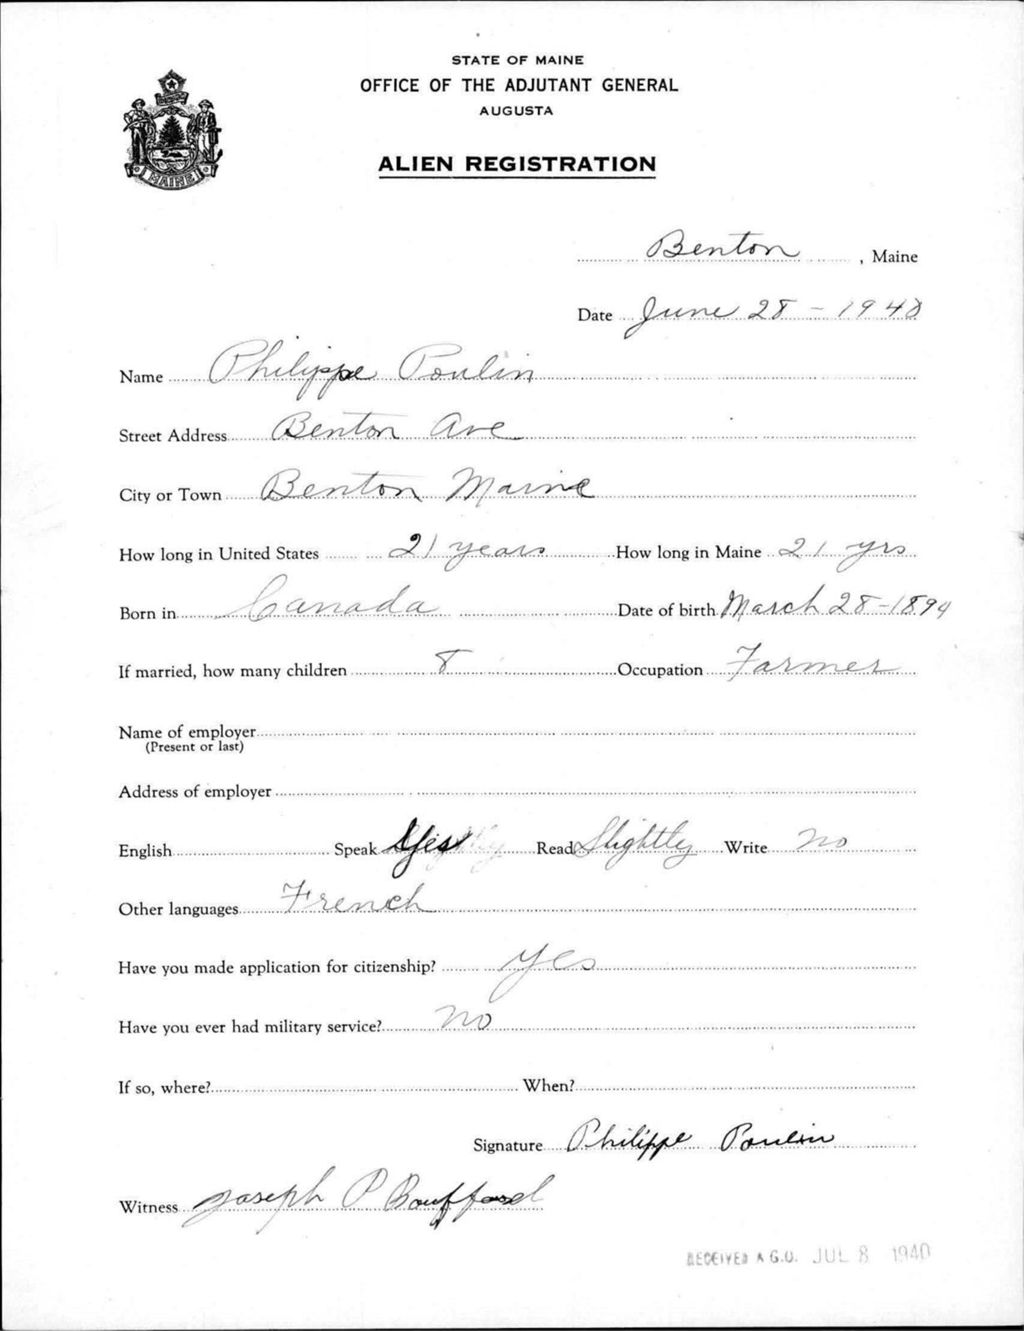 STATE OF MAINE
OFFICE OF THE ADJUTANT GENERAL
AUGUSTA
MAINE
ALIEN REGISTRATION
Benton, Maine
Date June 28 - 1940
Name Philippe Poulin
Street Address Benton Ave
City or Town Benton Maine
How long in United States 21 years How long in Maine 21 yrs
Born in Canada Date of birth March 28-1894
If married, how many children 8 Occupation Farmer
Name of employer
(Present or last)
Address of employer
English Speak Yes Read Slightly Write no
Other languages French
Have you made application for citizenship? Yes
Have you ever had military service? no
If so, where? When?
Signature Philippe Poulin
Witness Joseph P Bouffard
RECEIVED A.G.O. JUL 8 1940